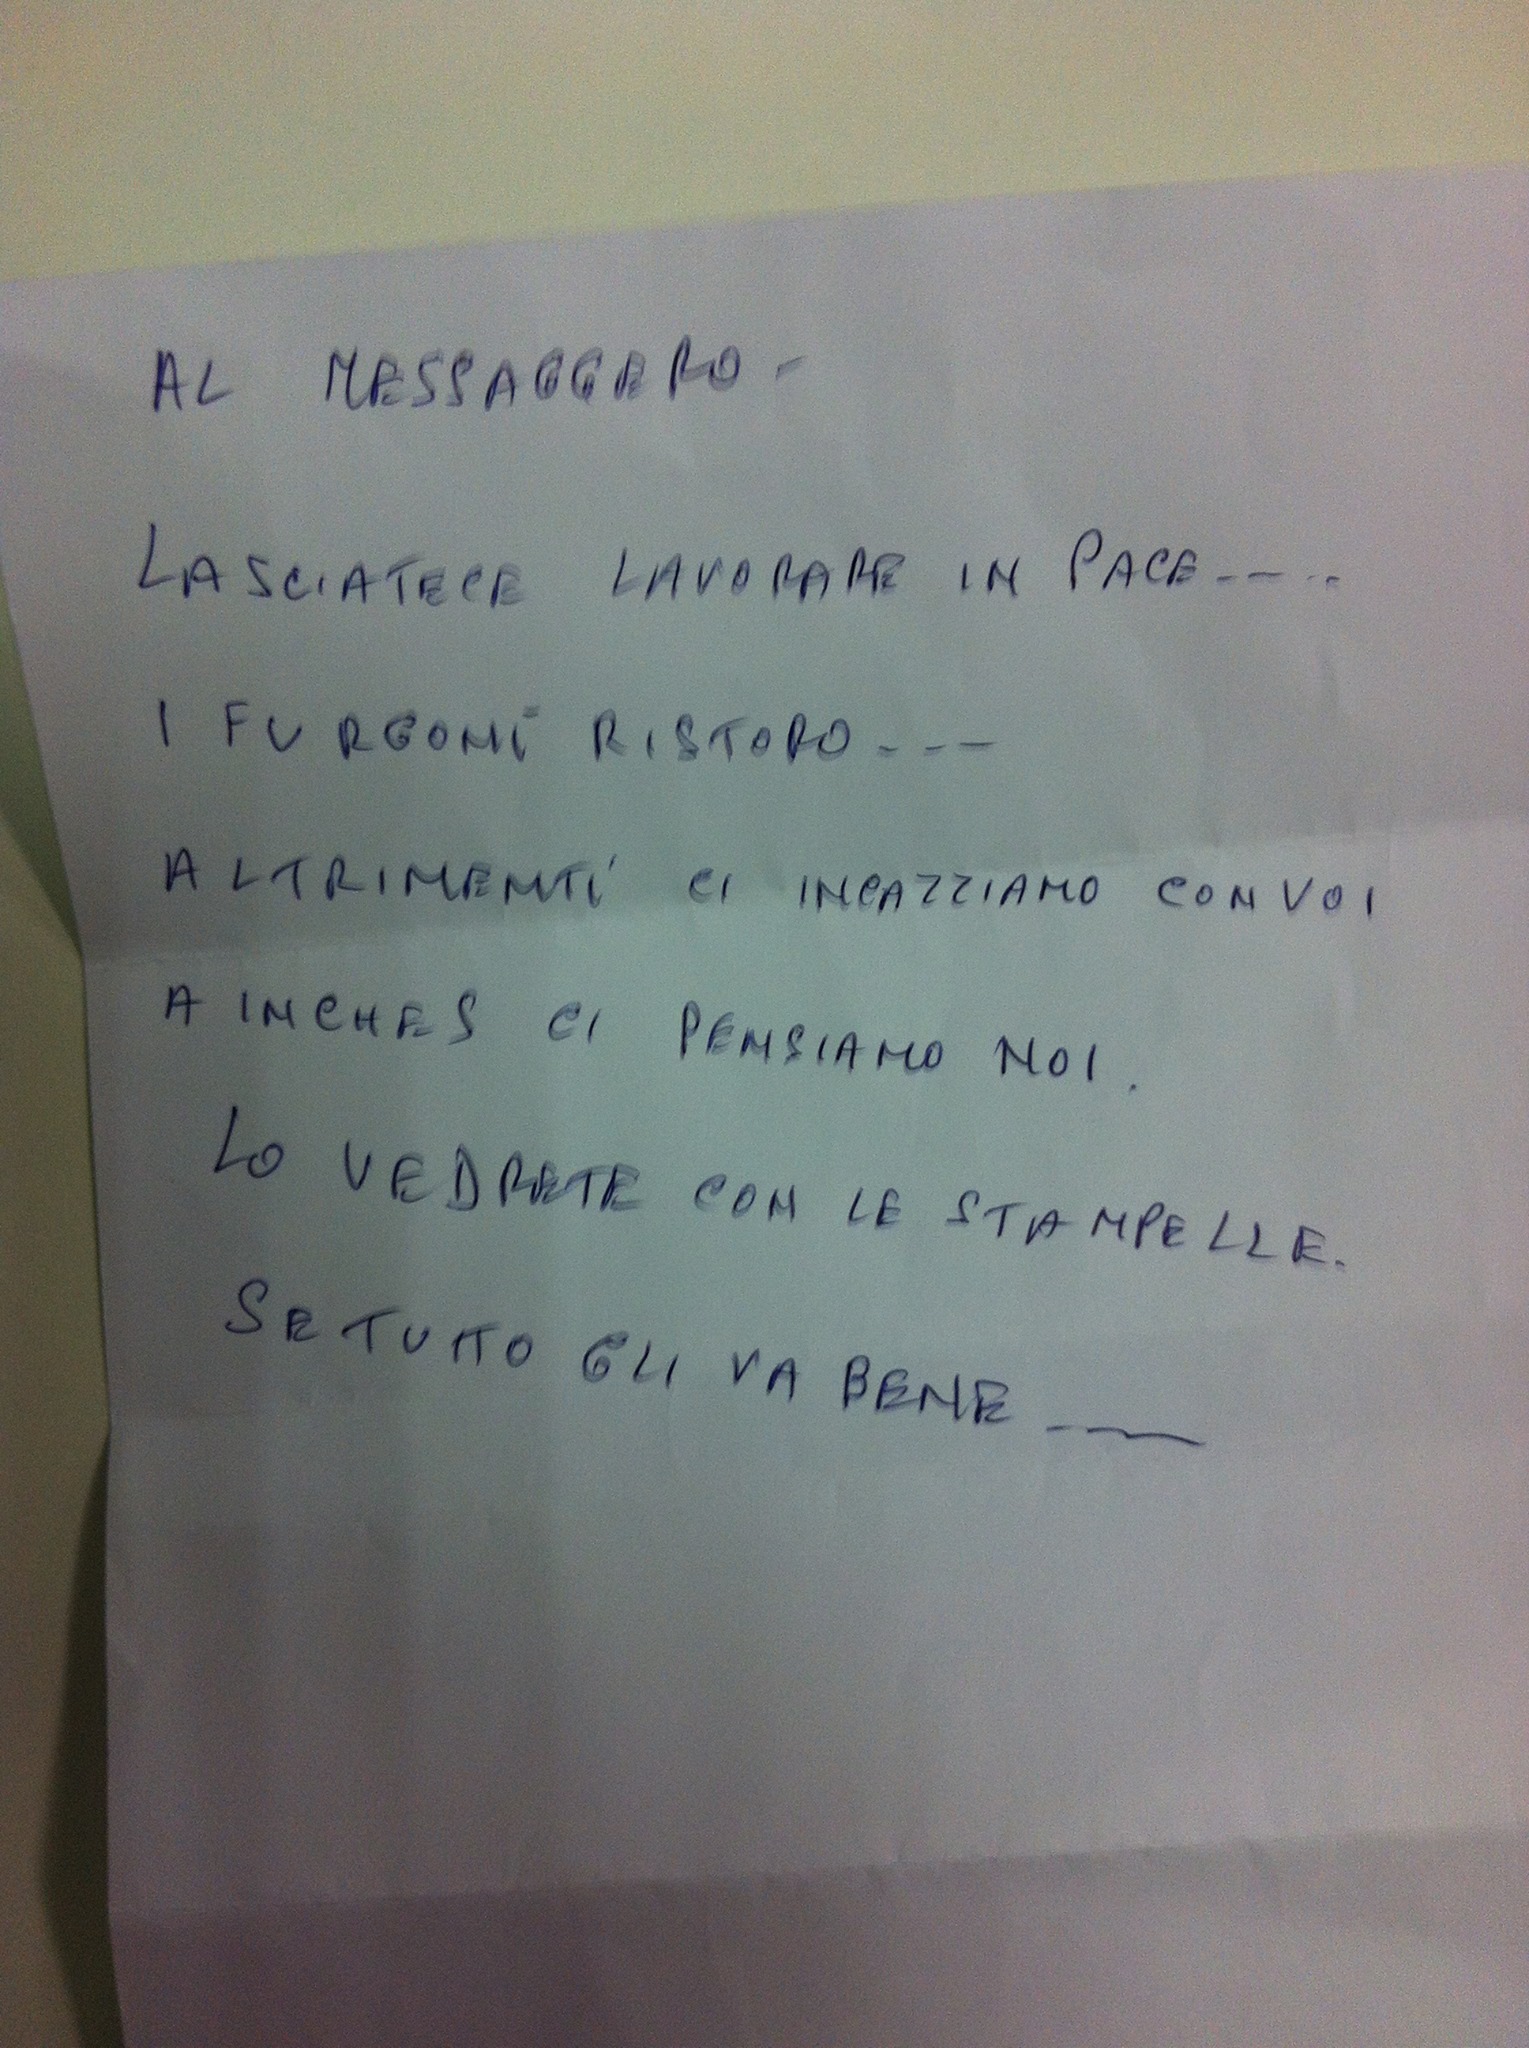 AL MESSAGGERO -
LASCIATECE LAVORARE IN PACE -----
I FURGONI RISTORO ---
ALTRIMENTI CI INCAZZIAMO CON VOI
A INCHES CI PENSIAMO NOI.
LO VEDRETE CON LE STAMPELLE.
SE TUTTO GLI VA BENE ___